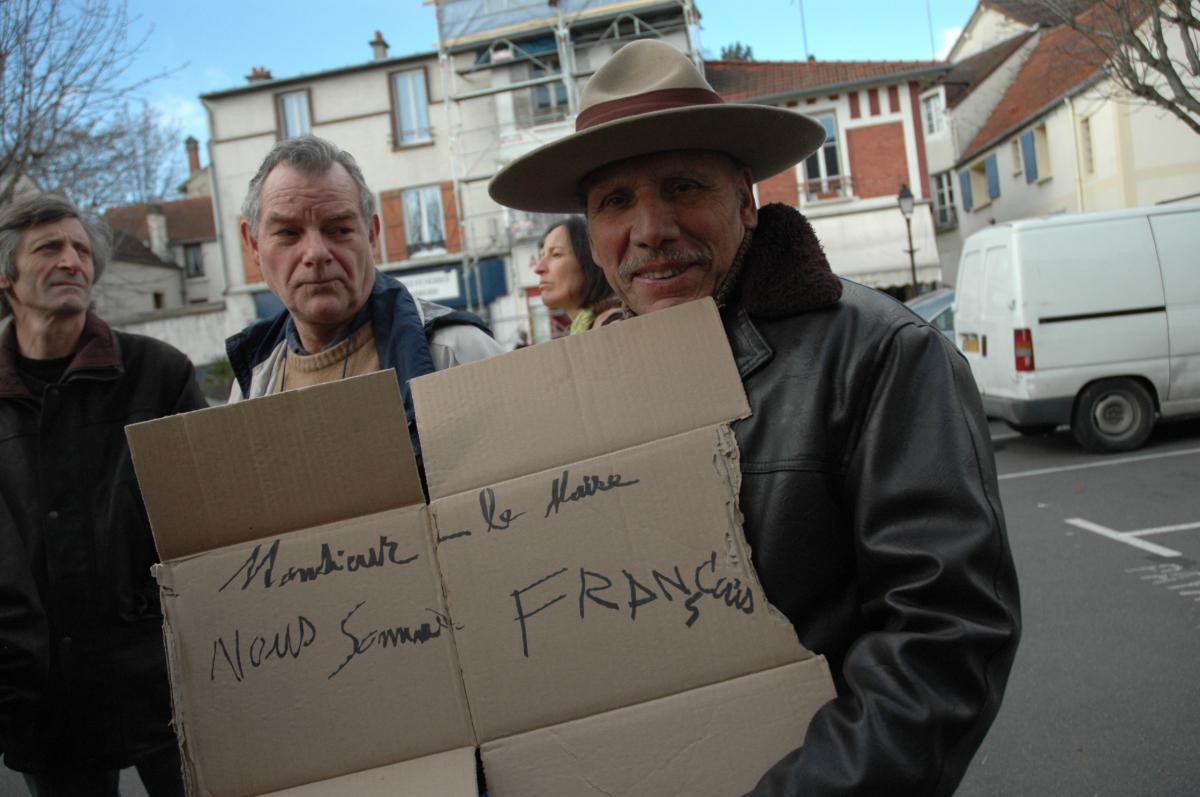 Monsieur le Maire
NOUS Sommes FRANÇais